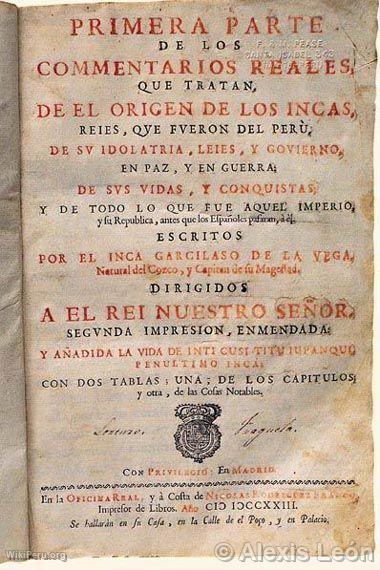 PRIMERA PARTE
DE LOS
COMMENTARIOS REALES,
QUE TRATAN,
DE EL ORIGEN DE LOS INCAS,
REIES, QVE FVERON DEL PERÙ,
DE SV IDOLATRIA, LEIES, Y GOVIERNO,
EN PAZ, Y EN GUERRA;
DE SVS VIDAS, Y CONQUISTAS;
Y DE TODO LO QUE FUE AQUEL IMPERIO,
y su Republica, antes que los Españoles pasaran, à èl.
ESCRITOS
POR EL INCA GARCILASO DE LA VEGA,
Natural del Cozco, y Capitan de su Magestad.
DIRIGIDOS
A EL REI NUESTRO SEÑOR.
SEGVNDA IMPRESION, ENMENDADA:
Y AÑADIDA LA VIDA DE INTI CUSI TITU IUPANQUI,
PENULTIMO INCA;
CON DOS TABLAS; UNA; DE LOS CAPITULOS;
y otra, de las Cosas Notables.
Lorenzo.
CON PRIVILEGIO: EN MADRID.
En la OFICINA REAL, y à Costa de NICOLAS RODRIGUEZ FRANCO,
Impresor de Libros. Año CIↃ IↃCCXXIII.
Se hallaràn en su Casa, en la Calle de el Poço, y en Palacio.
WikiPeru.org
© Alexis León